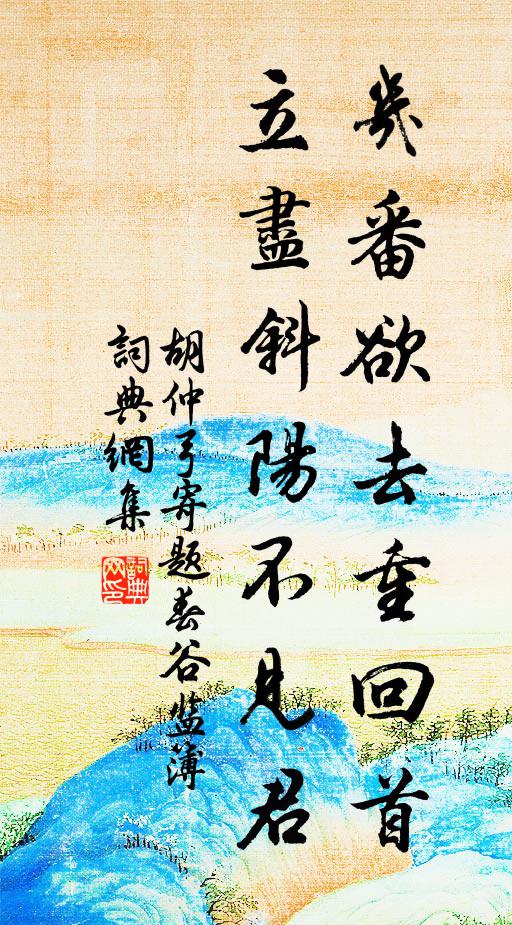 幾番欲去重回首
立盡斜陽不見君
胡仲弓寄題春谷監簿
詞典網集
詞典网印